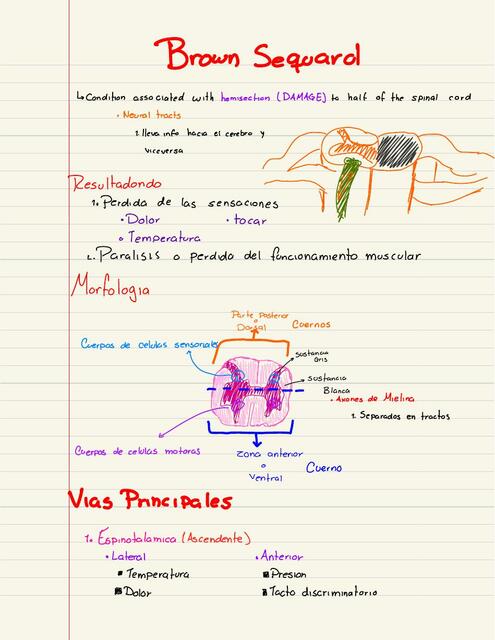 Brown Sequard
↳Condition associated with hemisection (DAMAGE) to half of the spinal cord
• Neural tracts
1. lleva info hacia el cerebro y
viceversa
Resultadondo
1. Perdida de las sensaciones
• Dolor • tocar
• Temperatura
2. Paralisis o perdida del funcionamiento muscular
Morfologia
Parte Posterior
o
Dorsal
Cuernos
Cuerpos de celulas sensoriales
sustancia
Gris
sustancia
Blanca
• Axones de Mielina
1. Separados en tractos
Cuerpos de celulas motoras
Zona anterior
o
Ventral
Cuerno
Vias Principales
1. Espinotalamica (Ascendente)
• Lateral • Anterior
Temperatura Presion
Dolor Tacto discriminatorio